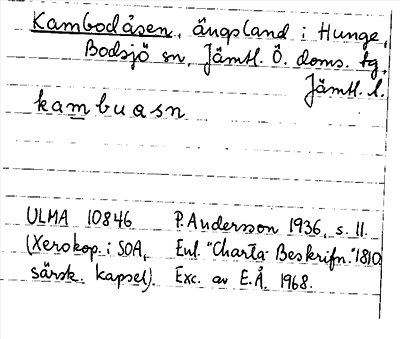 Kambodåsen, ängsland i Hunge,
Bodsjö sn, Jämtl. Ö. doms. tg,
Jämtl. l.
kambuasn
ULMA 10846 P. Andersson 1936, s. 11.
(Xerokop. i SOA, Enl. "Charta Beskrifn." 1810
särsk. kapsel). Exc. av E.Å. 1968.